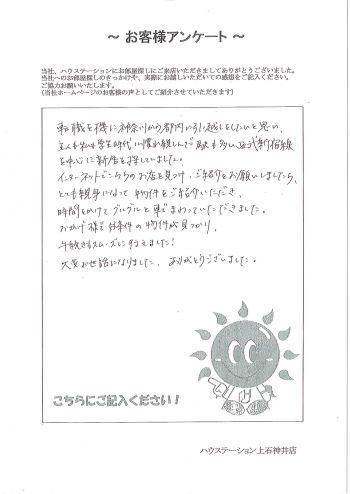 ～ お客様アンケート ～
当社、ハウステーションにお部屋探しにご来店いただきましてありがとうございました。
当社へのお部屋探しのきっかけや、実際にお話しいただいての感想をご記入ください。
ご協力お願いいたします。
(当社ホームページのお客様の声としてご紹介させていただきます)
転職を機に神奈川から都内に引っ越しをしたいと思い、
主人も私も学生時代に慣れ親しんだ 西武新宿線
を中心に新居を探していました。
インターネットでこちらのお店を見つけ、ご紹介をお願いしましたら、
とても親身になって物件をご紹介いただき、
時間をかけてグルグルと車でまわっていただきました。
おかげ様で好条件の物件が見つかり、
手続きもスムーズに行えました！
大変お世話になりました。ありがとうございました。
こちらにご記入ください！
ハウステーション上石神井店